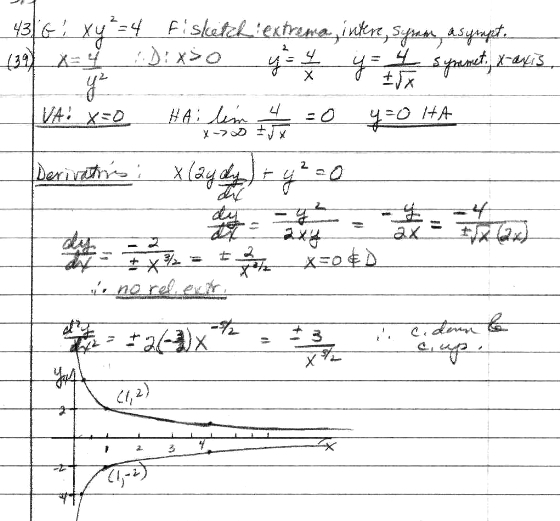 43) G: xy² = 4 F: sketch: extrema, interc, symm, asympt.
(39) x = 4/y² ∴ D: x > 0 y² = 4/x y = 4/±√x symmet, x-axis.
VA: x=0 HA: lim x→∞ 4/±√x = 0 y=0 HA
Derivatives: x(2y dy/dx) + y² = 0
dy/dx = -y²/2xy = -y/2x = -4/±√x (2x)
dy/dx = -2/±x^3/2 = ±2/x^3/2 x=0 ∉ D
∴ no rel. extr.
d²y/dx² = ±2(-3/2)x^-5/2 = ±3/x^5/2 ∴ c. down &
c. up.
y 4
(1,2)
2
1 2 3 4 x
-2
(1,-2)
-4